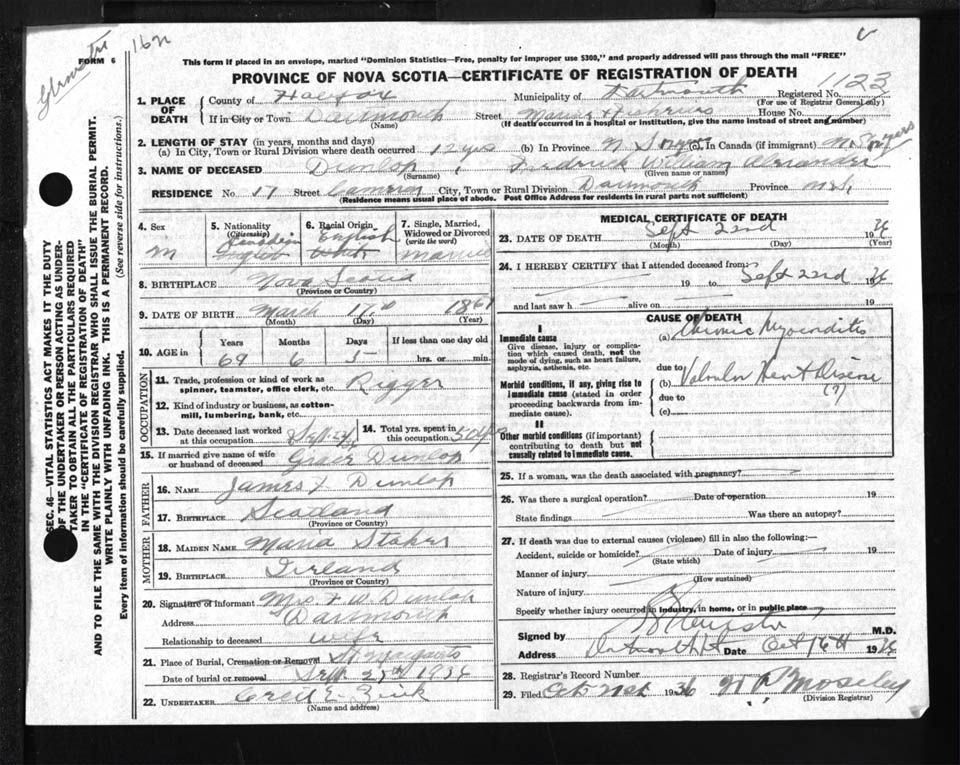 162
FORM 6
This form if placed in an envelope, marked "Dominion Statistics—Free, penalty for improper use $300," and properly addressed will pass through the mail "FREE"
PROVINCE OF NOVA SCOTIA—CERTIFICATE OF REGISTRATION OF DEATH
1123
1. PLACE OF DEATH County of Halifax Municipality of Dartmouth Registered No.
(For use of Registrar General only)
If in City or Town Dartmouth Street House No.
(Name) (If death occurred in a hospital or institution, give the name instead of street and number)
2. LENGTH OF STAY (in years, months and days)
(a) In City, Town or Rural Division where death occurred 12 yrs (b) In Province N S (c) In Canada (if immigrant)
3. NAME OF DECEASED Dunlop, Fredrick William Alexander
(Surname) (Given name or names)
RESIDENCE No. 17 Street Cameron City, Town or Rural Division Dartmouth Province N.S.
(Residence means usual place of abode. Post Office Address for residents in rural parts not sufficient)
4. Sex M
5. Nationality (Citizenship) Canadian English
6. Racial Origin English
7. Single, Married, Widowed or Divorced (write the word) married
8. BIRTHPLACE Nova Scotia
(Province or Country)
9. DATE OF BIRTH March 17 1867
(Month) (Day) (Year)
10. AGE in Years Months Days If less than one day old
69 6 5 hrs. or min.
OCCUPATION
11. Trade, profession or kind of work as spinner, teamster, office clerk, etc. Rigger
12. Kind of industry or business, as cotton-mill, lumbering, bank, etc.
13. Date deceased last worked at this occupation Sept
14. Total yrs. spent in this occupation 50 yrs
15. If married give name of wife or husband of deceased Grace Dunlop
FATHER
16. NAME James Dunlop
17. BIRTHPLACE Scotland
(Province or Country)
MOTHER
18. MAIDEN NAME Maria
19. BIRTHPLACE Ireland
(Province or Country)
20. Signature of Informant Mrs. F W Dunlop
Address Dartmouth
Relationship to deceased wife
21. Place of Burial, Cremation or Removal St Margarets
Date of burial or removal Sept 1936
22. UNDERTAKER Cecil E. Zink
(Name and address)
MEDICAL CERTIFICATE OF DEATH
23. DATE OF DEATH Sept 22nd 1936
(Month) (Day) (Year)
24. I HEREBY CERTIFY that I attended deceased from
19 to Sept 22nd 1936
and last saw h alive on 19
CAUSE OF DEATH
I
Immediate cause (a) Chronic Myocarditis
Give disease, injury or complication which caused death, not the mode of dying, such as heart failure, asphyxia, asthenia, etc.
due to
Morbid conditions, if any, giving rise to immediate cause (stated in order proceeding backwards from immediate cause).
(b) Valvular Heart Disease (?)
due to
(c)
II
Other morbid conditions (if important) contributing to death but not causally related to immediate cause.
25. If a woman, was the death associated with pregnancy?
26. Was there a surgical operation? Date of operation 19
State findings Was there an autopsy?
27. If death was due to external causes (violence) fill in also the following:—
Accident, suicide or homicide? Date of injury 19
(State which)
Manner of injury
(How sustained)
Nature of injury
Specify whether injury occurred in industry, in home, or in public place
Signed by M.D.
Address Dartmouth Date Oct 16th 1936
28. Registrar's Record Number
29. Filed Oct 21st 1936 Moseley
(Division Registrar)
SEC. 46—VITAL STATISTICS ACT MAKES IT THE DUTY
OF THE UNDERTAKER OR PERSON ACTING AS UNDER-
TAKER TO OBTAIN ALL THE PARTICULARS REQUIRED
IN THE "CERTIFICATE OF REGISTRATION OF DEATH"
AND TO FILE THE SAME WITH THE DIVISION REGISTRAR WHO SHALL ISSUE THE BURIAL PERMIT.
WRITE PLAINLY WITH UNFADING INK. THIS IS A PERMANENT RECORD.
Every item of information should be carefully supplied. (See reverse side for instructions.)